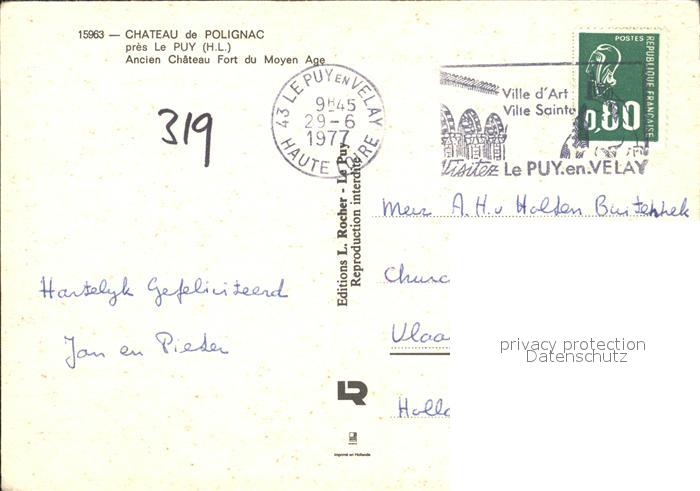 15963 — CHATEAU de POLIGNAC
près Le PUY (H.L.)
Ancien Château Fort du Moyen Age
319
43 LE PUY EN VELAY
9H45
29-6
1977
HAUTE LOIRE
Ville d'Art
Ville Sainte
Visitez Le PUY.en.VELAY
POSTES
REPUBLIQUE FRANÇAISE
0,80
Editions L. Rocher - Le Puy
Reproduction interdite
A. H. v Holsten
Hartelyk Gefeliciteerd
Jan en Pieter
Vlaa
Holla
privacy protection
Datenschutz
LR
Imprimé en Hollande